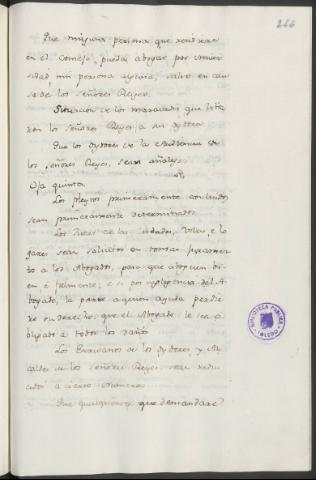 266
Que ninguna persona que residiere
en el Consejo, pueda abogar por comu-
nidad, nin persona alguna, salvo en cau-
sas de los Señores Reyes.
Situacion de los maravedis que
los Señores Reyes a sus oydores
Que los oydores de la Audiencia de
los Señores Reyes, sean añales.
Oja quinta.
Los pleytos primeramente concluidos
sean primeramente determinados.
Los Jueces de las cibdades, Villas, e lo-
gares sean solicitos en tomar juramen-
to a los Abogados, para que aboguen bi-
en e fielmente; e si por negligencia del A-
bogado, la parte a quien ayuda perdie-
re su derecho, que el Abogado le sea o-
bligado a todos los daños
Los Escrivanos de los oydores, y Al-
caldes de los Señores Reyes sean redu-
cidos a cierto numero
Que qualquiera que demandare
BIBLIOTECA PUBLICA
TOLEDO